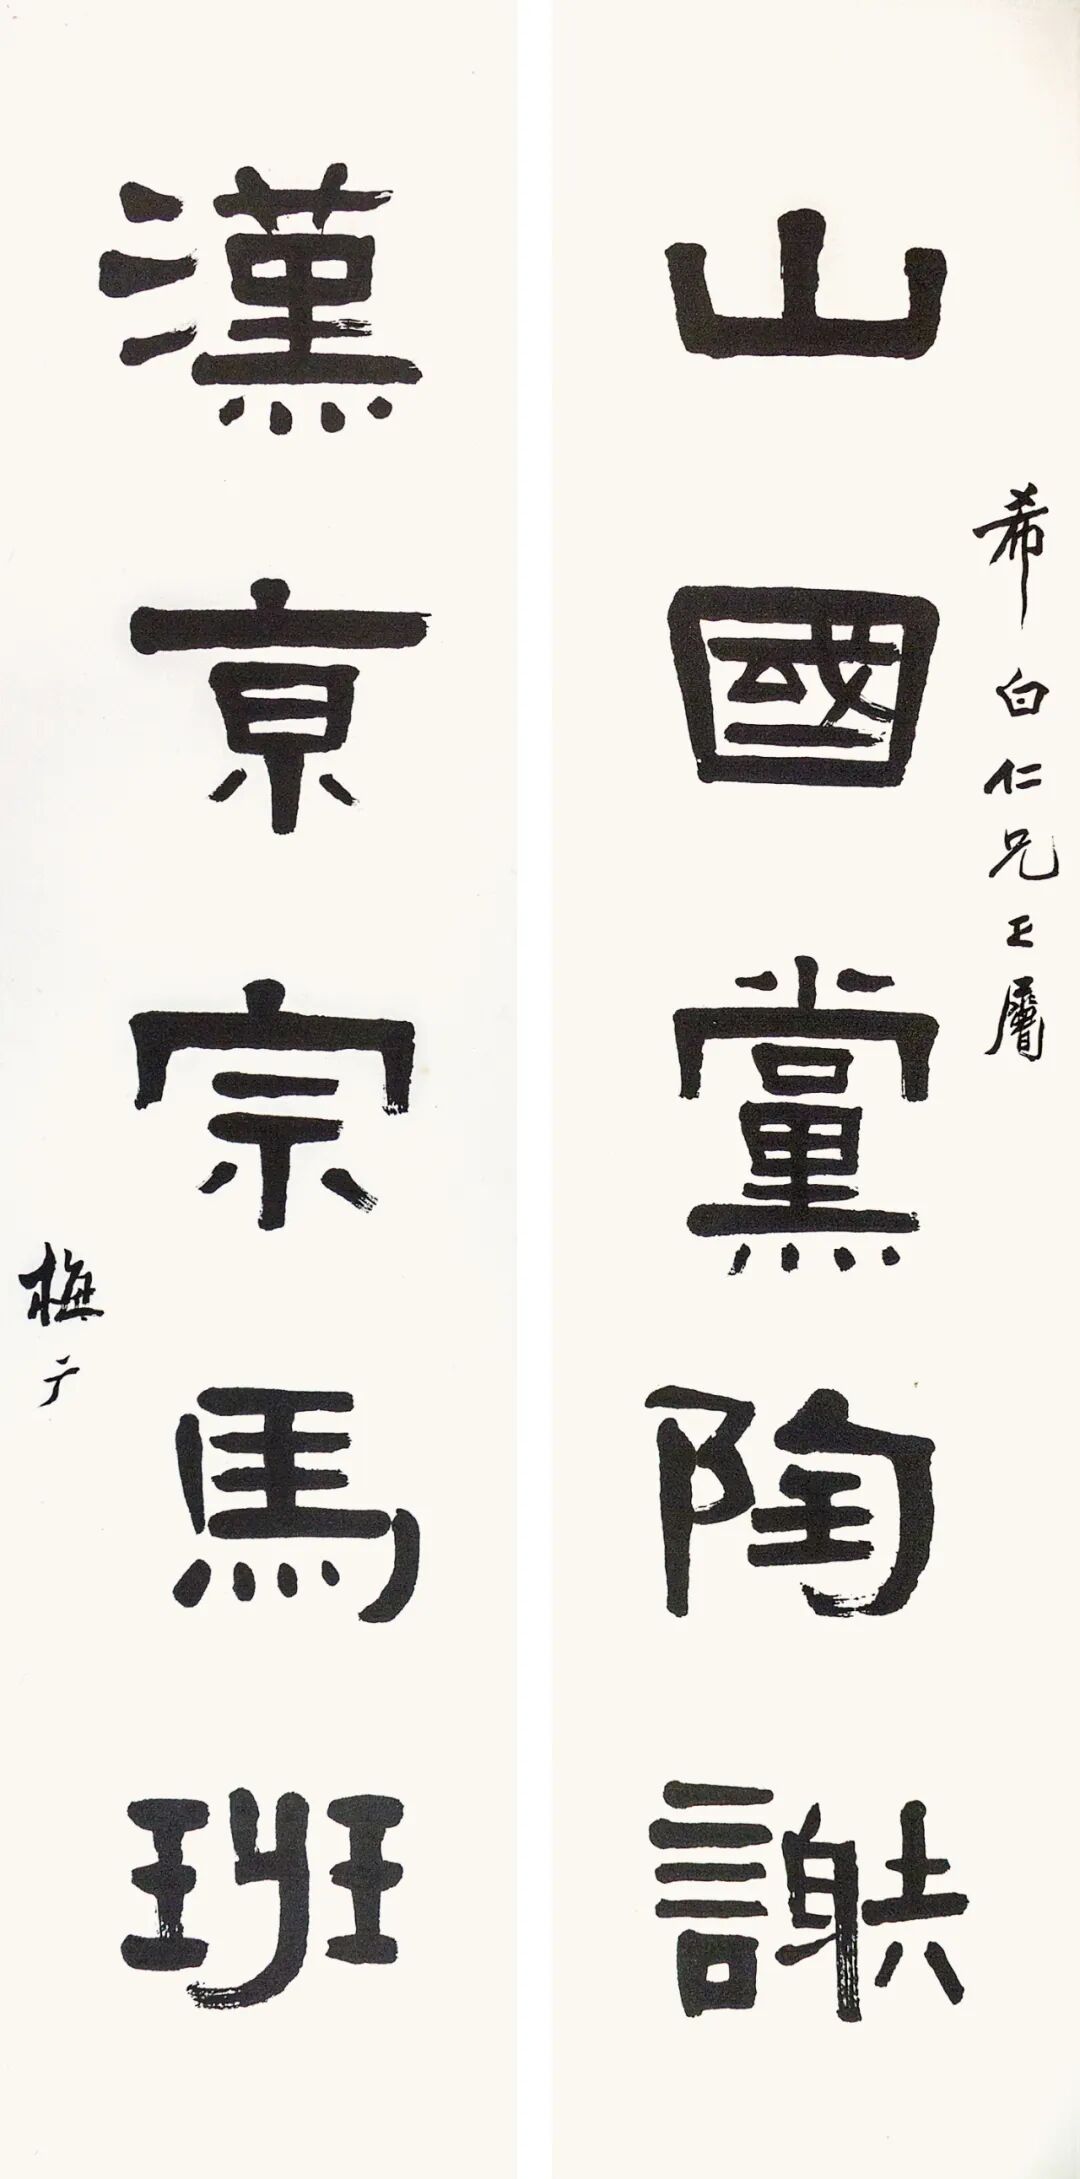 山國黨陶謝
希白仁兄正屬
漢京宗馬班
橅于